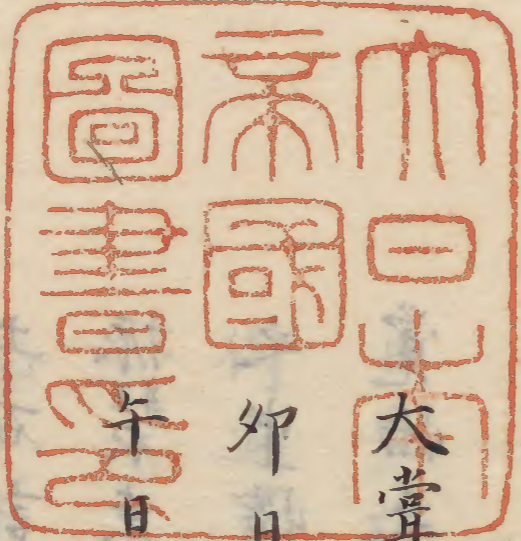 大日本
帝國
圖書印
大嘗
卯日
午日